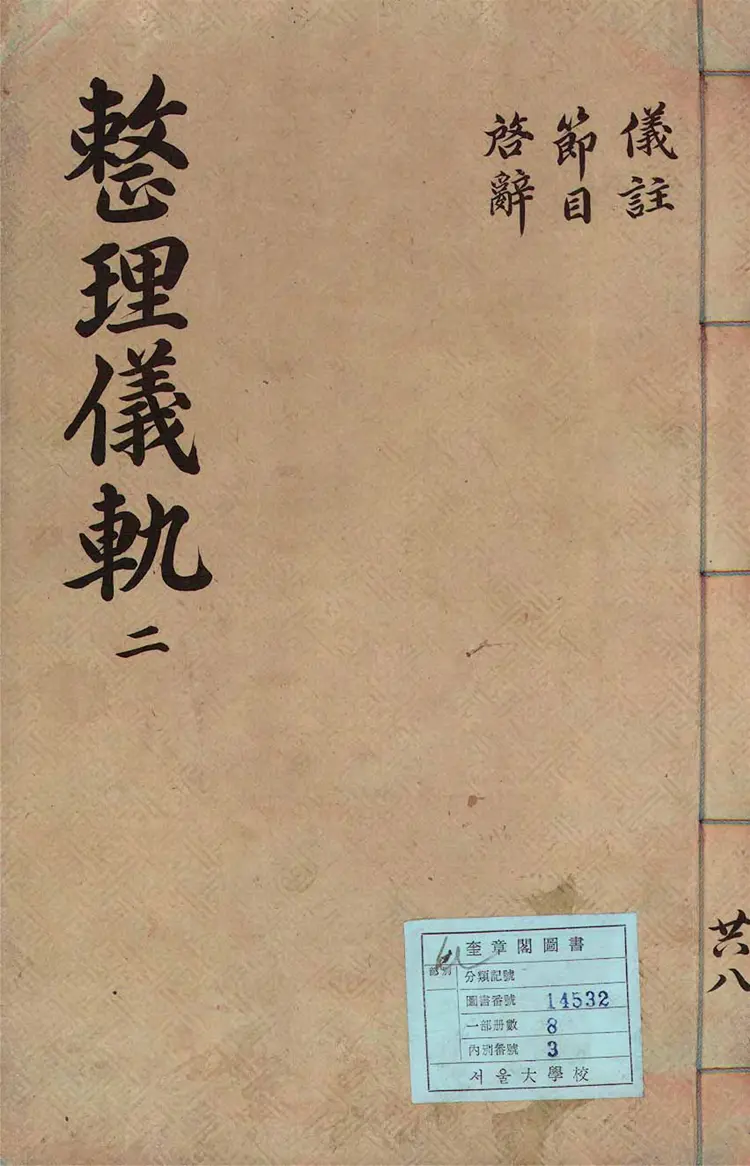 儀註
節目
啓辭
整理儀軌 二
共八
奎章閣圖書
分類記號
圖書番號 14532
一部册數 8
內別番號 3
서울大學校